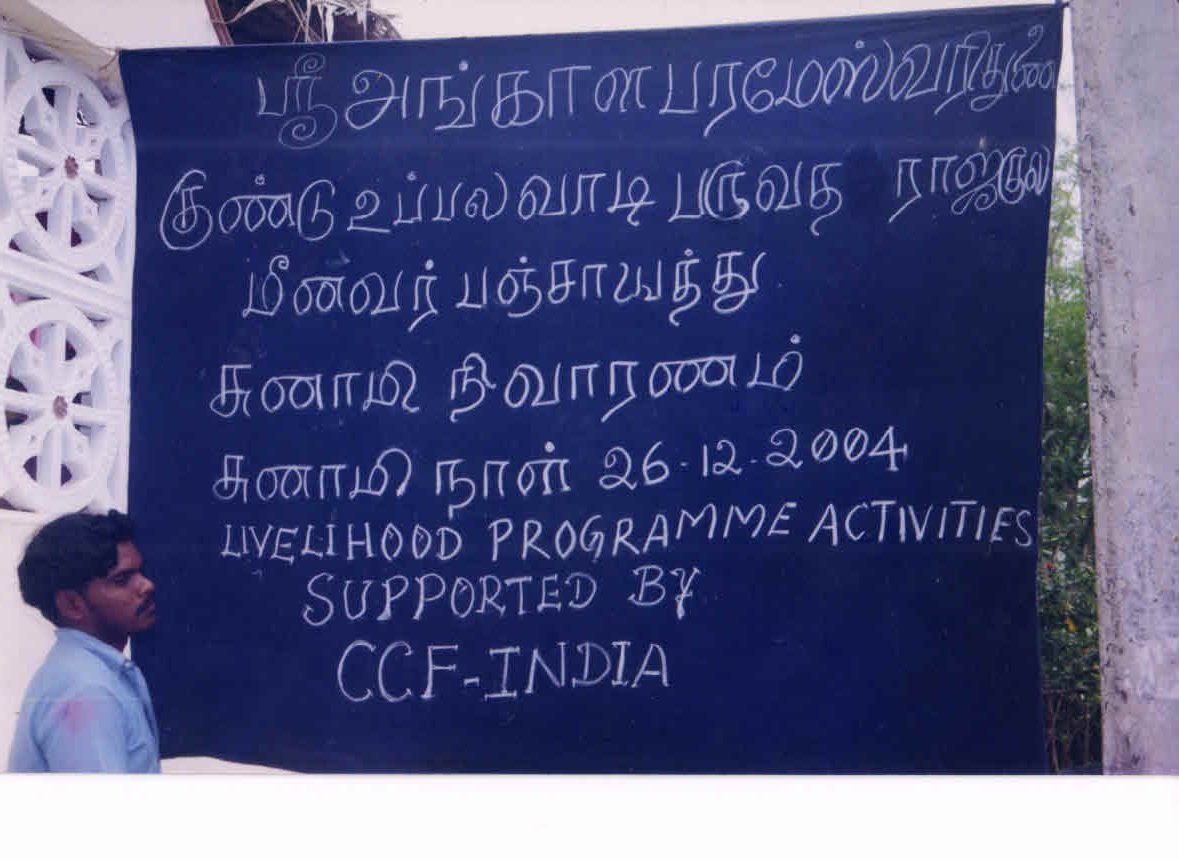 ஸ்ரீ அங்காள பரமேஸ்வரி துணை
குண்டு உப்பலவாடி பருவத ராஜகுல
மீனவர் பஞ்சாயத்து
சுனாமி நிவாரணம்
சுனாமி நாள் 26-12-2004
LIVELIHOOD PROGRAMME ACTIVITIES
SUPPORTED BY
CCF-INDIA